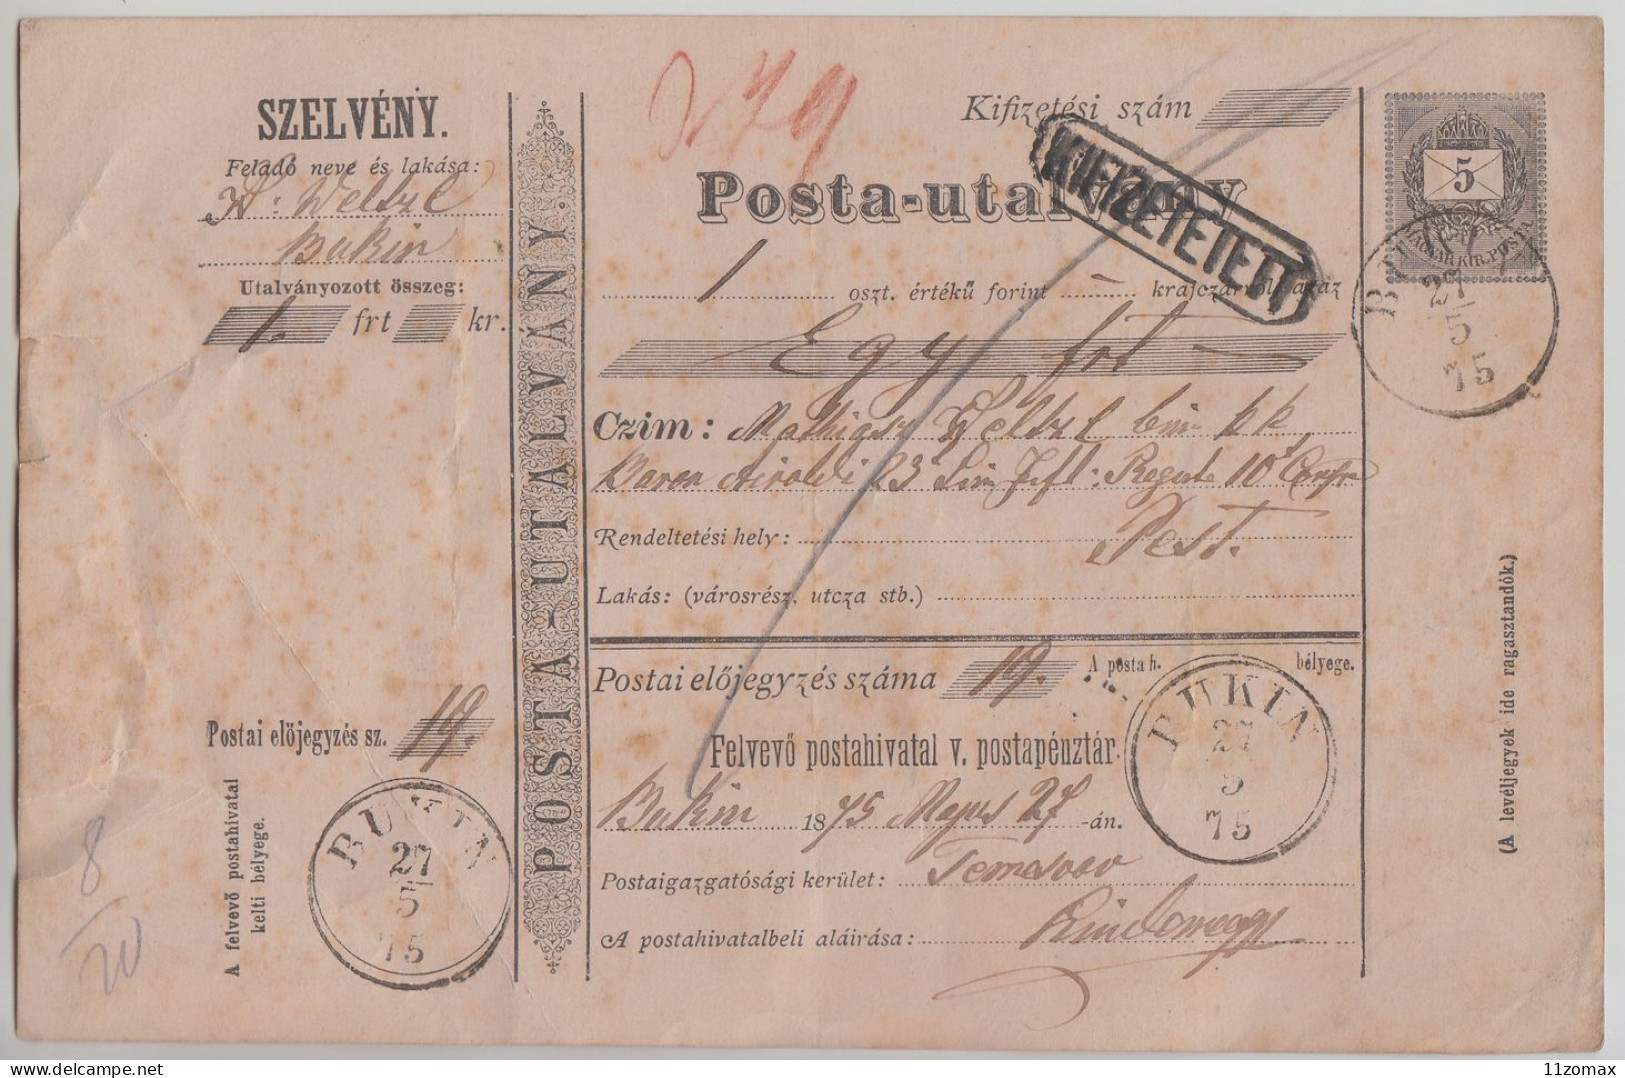 SZELVÉNY.
Feladó neve és lakása:
A. Weltzl
Bukin
Utalványozott összeg:
1. frt kr.
Postai előjegyzés sz. 19.
A felvevő postahivatal
kelti bélyege.
BUKIN
27
5
75
8
20
POSTA-UTALVÁNY.
279
Kifizetési szám
Posta-utalvány
KIFIZETETETT
1 oszt. értékű forint – krajczárról azaz
Egy frt
Czim: Mathias Weltzl beim k k
Baron Airoldi 23 Lin Inft: Regmt 10 Comp
Rendeltetési hely: Pest.
Lakás: (városrész, utcza stb.)
Postai előjegyzés száma 19.
A posta h. bélyege.
Felvevő postahivatal v. postapénztár.
Bukin 1875 Majus 27-án.
Postaigazgatósági kerület: Temesvar
A postahivatalbeli aláirása:
BUKIN
27
5
75
5
MAGYAR KIR. POSTA
27
5
75
(A levéljegyek ide ragasztandók.)
11zomax